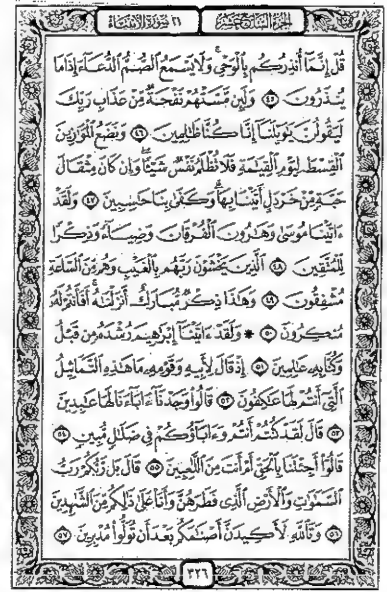 الجزء السابع عشر ٢١ سورة الأنبياء
قُلْ إِنَّمَآ أُنذِرُكُم بِٱلْوَحْىِ ۚ وَلَا يَسْمَعُ ٱلصُّمُّ ٱلدُّعَآءَ إِذَا مَا
يُنذَرُونَ ۝٤٥ وَلَئِن مَّسَّتْهُمْ نَفْحَةٌ مِّنْ عَذَابِ رَبِّكَ
لَيَقُولُنَّ يَٰوَيْلَنَآ إِنَّا كُنَّا ظَٰلِمِينَ ۝٤٦ وَنَضَعُ ٱلْمَوَٰزِينَ
ٱلْقِسْطَ لِيَوْمِ ٱلْقِيَٰمَةِ فَلَا تُظْلَمُ نَفْسٌ شَيْـًٔا ۖ وَإِن كَانَ مِثْقَالَ
حَبَّةٍ مِّنْ خَرْدَلٍ أَتَيْنَا بِهَا ۗ وَكَفَىٰ بِنَا حَٰسِبِينَ ۝٤٧ وَلَقَدْ
ءَاتَيْنَا مُوسَىٰ وَهَٰرُونَ ٱلْفُرْقَانَ وَضِيَآءً وَذِكْرًا
لِّلْمُتَّقِينَ ۝٤٨ ٱلَّذِينَ يَخْشَوْنَ رَبَّهُم بِٱلْغَيْبِ وَهُم مِّنَ ٱلسَّاعَةِ
مُشْفِقُونَ ۝٤٩ وَهَٰذَا ذِكْرٌ مُّبَارَكٌ أَنزَلْنَٰهُ ۚ أَفَأَنتُمْ لَهُۥ
مُنكِرُونَ ۝٥٠ ۞ وَلَقَدْ ءَاتَيْنَآ إِبْرَٰهِيمَ رُشْدَهُۥ مِن قَبْلُ
وَكُنَّا بِهِۦ عَٰلِمِينَ ۝٥١ إِذْ قَالَ لِأَبِيهِ وَقَوْمِهِۦ مَا هَٰذِهِ ٱلتَّمَاثِيلُ
ٱلَّتِىٓ أَنتُمْ لَهَا عَٰكِفُونَ ۝٥٢ قَالُوا۟ وَجَدْنَآ ءَابَآءَنَا لَهَا عَٰبِدِينَ
۝٥٣ قَالَ لَقَدْ كُنتُمْ أَنتُمْ وَءَابَآؤُكُمْ فِى ضَلَٰلٍ مُّبِينٍ ۝٥٤
قَالُوٓا۟ أَجِئْتَنَا بِٱلْحَقِّ أَمْ أَنتَ مِنَ ٱللَّٰعِبِينَ ۝٥٥ قَالَ بَل رَّبُّكُمْ رَبُّ
ٱلسَّمَٰوَٰتِ وَٱلْأَرْضِ ٱلَّذِى فَطَرَهُنَّ وَأَنَا۠ عَلَىٰ ذَٰلِكُم مِّنَ ٱلشَّٰهِدِينَ
۝٥٦ وَتَٱللَّهِ لَأَكِيدَنَّ أَصْنَٰمَكُم بَعْدَ أَن تُوَلُّوا۟ مُدْبِرِينَ ۝٥٧
٣٢٦